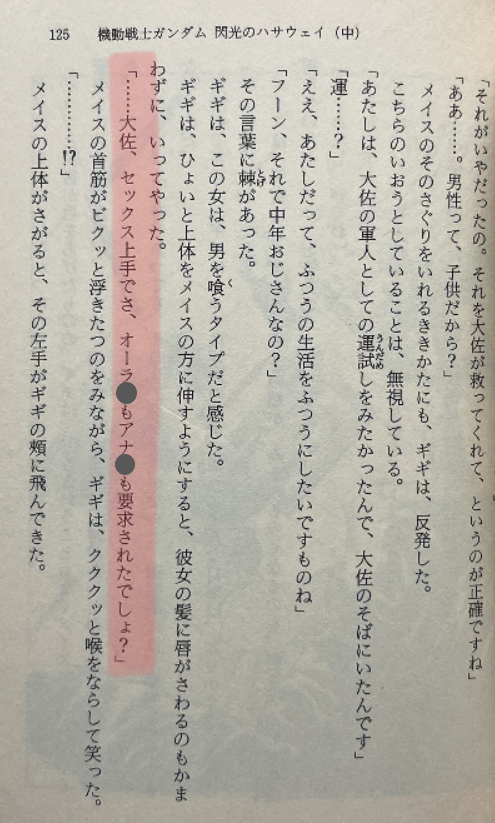 125 機動戦士ガンダム 閃光のハサウェイ（中）
「それがいやだったの。それを大佐が救ってくれて、というのが正確ですね」
「ああ……。男性って、子供だから？」
メイスのそのさぐりをいれるききかたにも、ギギは、反発した。
こちらのいおうとしていることは、無視している。
「あたしは、大佐の軍人としての運試しをみたかったんで、大佐のそばにいたんです」
「運……？」
「ええ、あたしだって、ふつうの生活をふつうにしたいですものね」
「フーン、それで中年おじさんなの？」
その言葉に棘があった。
ギギは、この女は、男を喰うタイプだと感じた。
ギギは、ひょいと上体をメイスの方に伸すようにすると、彼女の髪に唇がさわるのもかま
わずに、いってやった。
「……大佐、セックス上手でさ、オーラ●もアナ●も要求されたでしょ？」
メイスの首筋がビクッと浮きたつのをみながら、ギギは、ククククッと喉をならして笑った。
「…………!?」
メイスの上体がさがると、その左手がギギの頬に飛んできた。